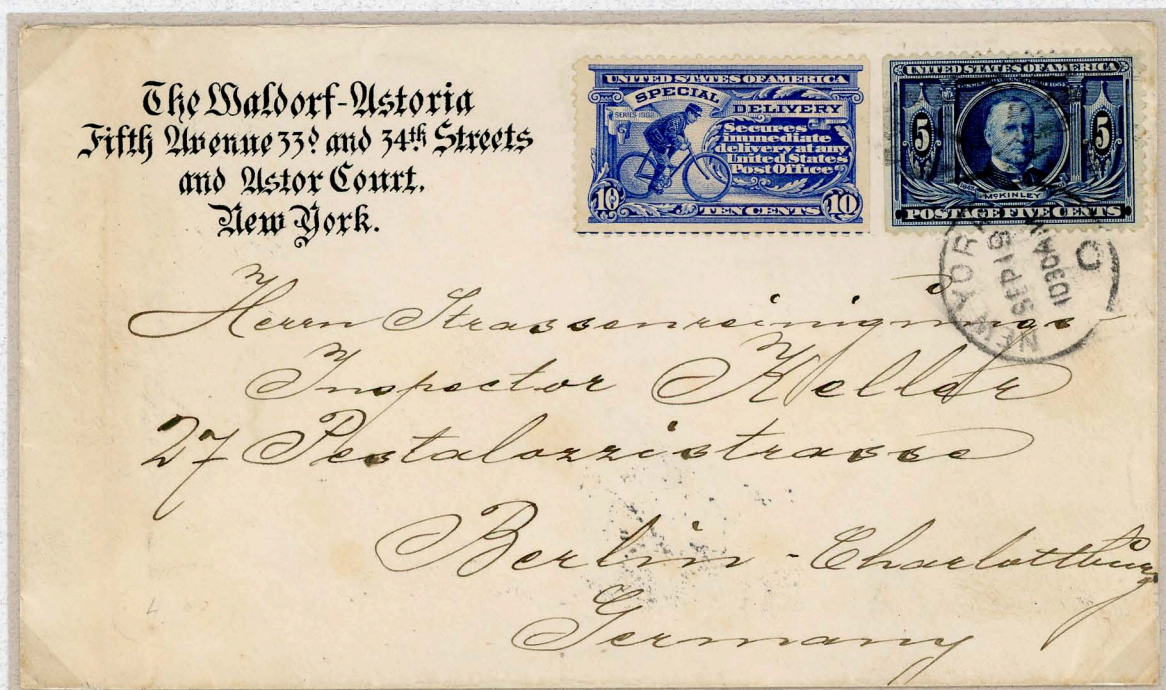 The Waldorf-Astoria
Fifth Avenue 33d and 34th Streets
and Astor Court.
New York.
UNITED STATES OF AMERICA
SPECIAL DELIVERY
SERIES 1902
Secures
immediate
delivery at any
United States
Post Office
10 TEN CENTS 10
UNITED STATES OF AMERICA
5 5
McKINLEY
POSTAGE FIVE CENTS
NEW YORK
SEP 16
1030A
Herrn Strassenreinigungs-
Inspector Keller
27 Pestalozzistrasse
Berlin - Charlottburg
Germany